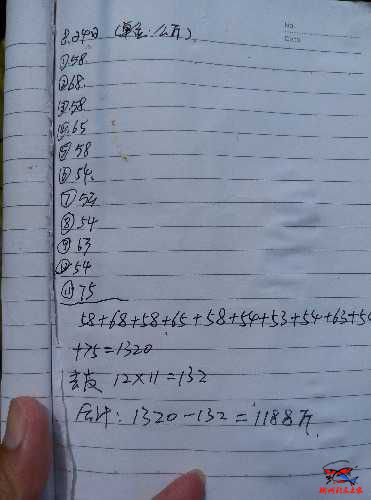 No.
Date
8.24日 (单位:公斤)
①58
②68
③58
④65
⑤58
⑥54
⑦53
⑧54
⑨63
⑩54
⑪75
58+68+58+65+58+54+53+54+63+54
+75=1320
去皮 12×11=132
合计:1320-132=1188斤